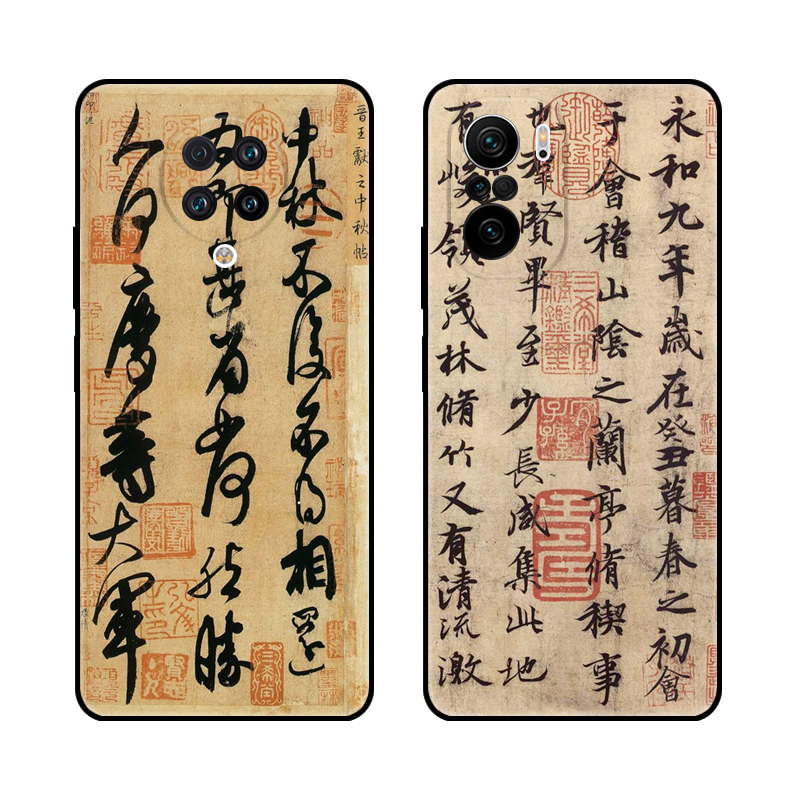 晉王獻之中秋帖
中秋不復不得相還
為即甚省如何然勝
人何慶等大軍
永和九年歲在癸丑暮春之初會
于會稽山陰之蘭亭脩稧事
也羣賢畢至少長咸集此地
有峻領茂林脩竹又有清流激